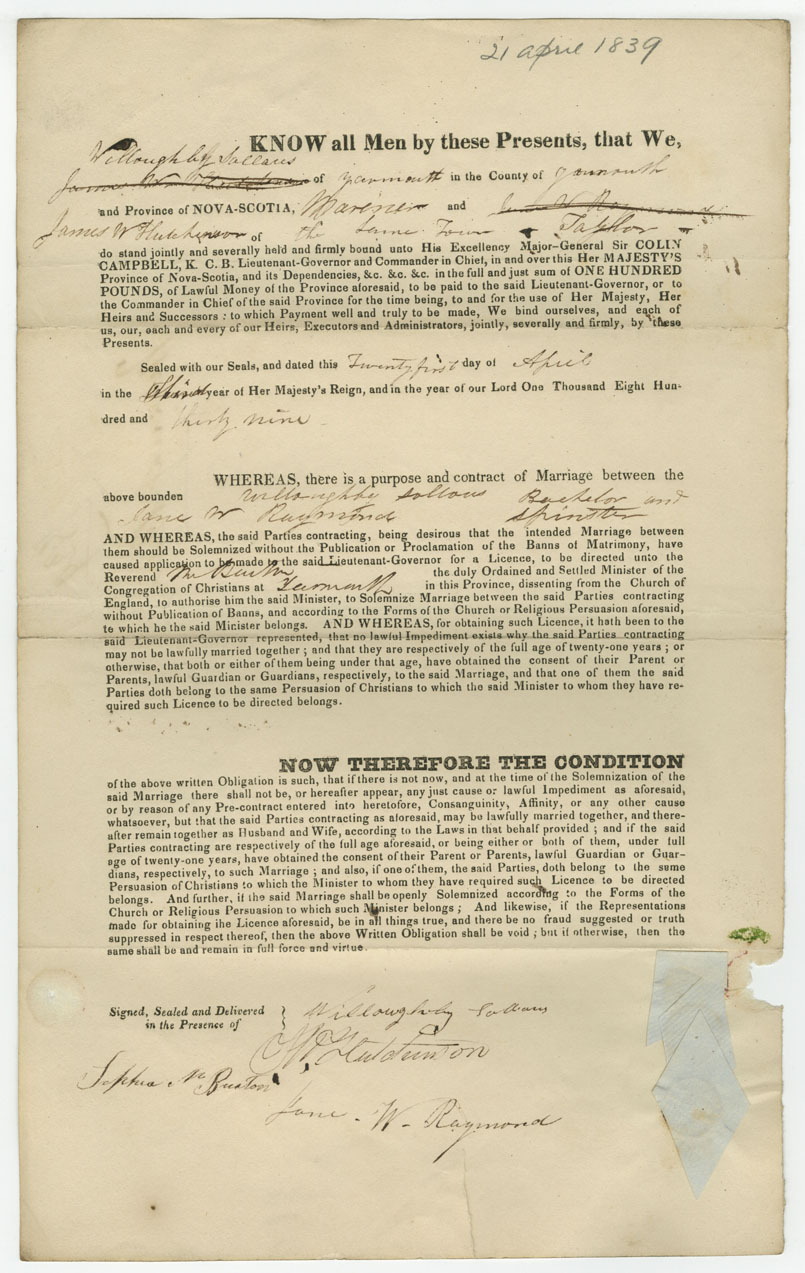 21 april 1839
KNOW all Men by these Presents, that We,
Willoughby Sollows
of Yarmouth in the County of Yarmouth
and Province of NOVA-SCOTIA, Mariner and
James W Hutchinson of the same Town Taylor
do stand jointly and severally held and firmly bound unto His Excellency Major-General Sir COLIN
CAMPBELL, K. C. B. Lieutenant-Governor and Commander in Chief, in and over this Her MAJESTY'S
Province of Nova-Scotia, and its Dependencies, &c. &c. &c. in the full and just sum of ONE HUNDRED
POUNDS, of Lawful Money of the Province aforesaid, to be paid to the said Lieutenant-Governor, or to
the Commander in Chief of the said Province for the time being, to and for the use of Her Majesty, Her
Heirs and Successors : to which Payment well and truly to be made, We bind ourselves, and each of
us, our, each and every of our Heirs, Executors and Administrators, jointly, severally and firmly, by these
Presents.
Sealed with our Seals, and dated this Twentyfirst day of April
in the year of Her Majesty's Reign, and in the year of our Lord One Thousand Eight Hun-
dred and thirty nine
WHEREAS, there is a purpose and contract of Marriage between the
above bounden Willoughby Sollows Bachelor and
Jane W Raymond Spinster
AND WHEREAS, the said Parties contracting, being desirous that the intended Marriage between
them should be Solemnized without the Publication or Proclamation of the Banns of Matrimony, have
caused application to be made to the said Lieutenant-Governor for a Licence, to be directed unto the
Reverend the duly Ordained and Settled Minister of the
Congregation of Christians at Yarmouth in this Province, dissenting from the Church of
England, to authorise him the said Minister, to Solemnize Marriage between the said Parties contracting
without Publication of Banns, and according to the Forms of the Church or Religious Persuasion aforesaid,
to which he the said Minister belongs. AND WHEREAS, for obtaining such Licence, it hath been to the
said Lieutenant-Governor represented, that no lawful Impediment exists why the said Parties contracting
may not be lawfully married together ; and that they are respectively of the full age of twenty-one years ; or
otherwise, that both or either of them being under that age, have obtained the consent of their Parent or
Parents, lawful Guardian or Guardians, respectively, to the said Marriage, and that one of them the said
Parties doth belong to the same Persuasion of Christians to which the said Minister to whom they have re-
quired such Licence to be directed belongs.
NOW THEREFORE THE CONDITION
of the above written Obligation is such, that if there is not now, and at the time of the Solemnization of the
said Marriage there shall not be, or hereafter appear, any just cause or lawful Impediment as aforesaid,
or by reason of any Pre-contract entered into heretofore, Consanguinity, Affinity, or any other cause
whatsoever, but that the said Parties contracting as aforesaid, may be lawfully married together, and there-
after remain together as Husband and Wife, according to the Laws in that behalf provided ; and if the said
Parties contracting are respectively of the full age aforesaid, or being either or both of them, under full
age of twenty-one years, have obtained the consent of their Parent or Parents, lawful Guardian or Guar-
dians, respectively, to such Marriage ; and also, if one of them, the said Parties, doth belong to the same
Persuasion of Christians to which the Minister to whom they have required such Licence to be directed
belongs. And further, if the said Marriage shall be openly Solemnized according to the Forms of the
Church or Religious Persuasion to which such Minister belongs ; And likewise, if the Representations
made for obtaining the Licence aforesaid, be in all things true, and there be no fraud suggested or truth
suppressed in respect thereof, then the above Written Obligation shall be void ; but if otherwise, then the
same shall be and remain in full force and virtue.
Signed, Sealed and Delivered
in the Presence of
Willoughby Sollows
W Hutchinson
Sophia
Jane W Raymond